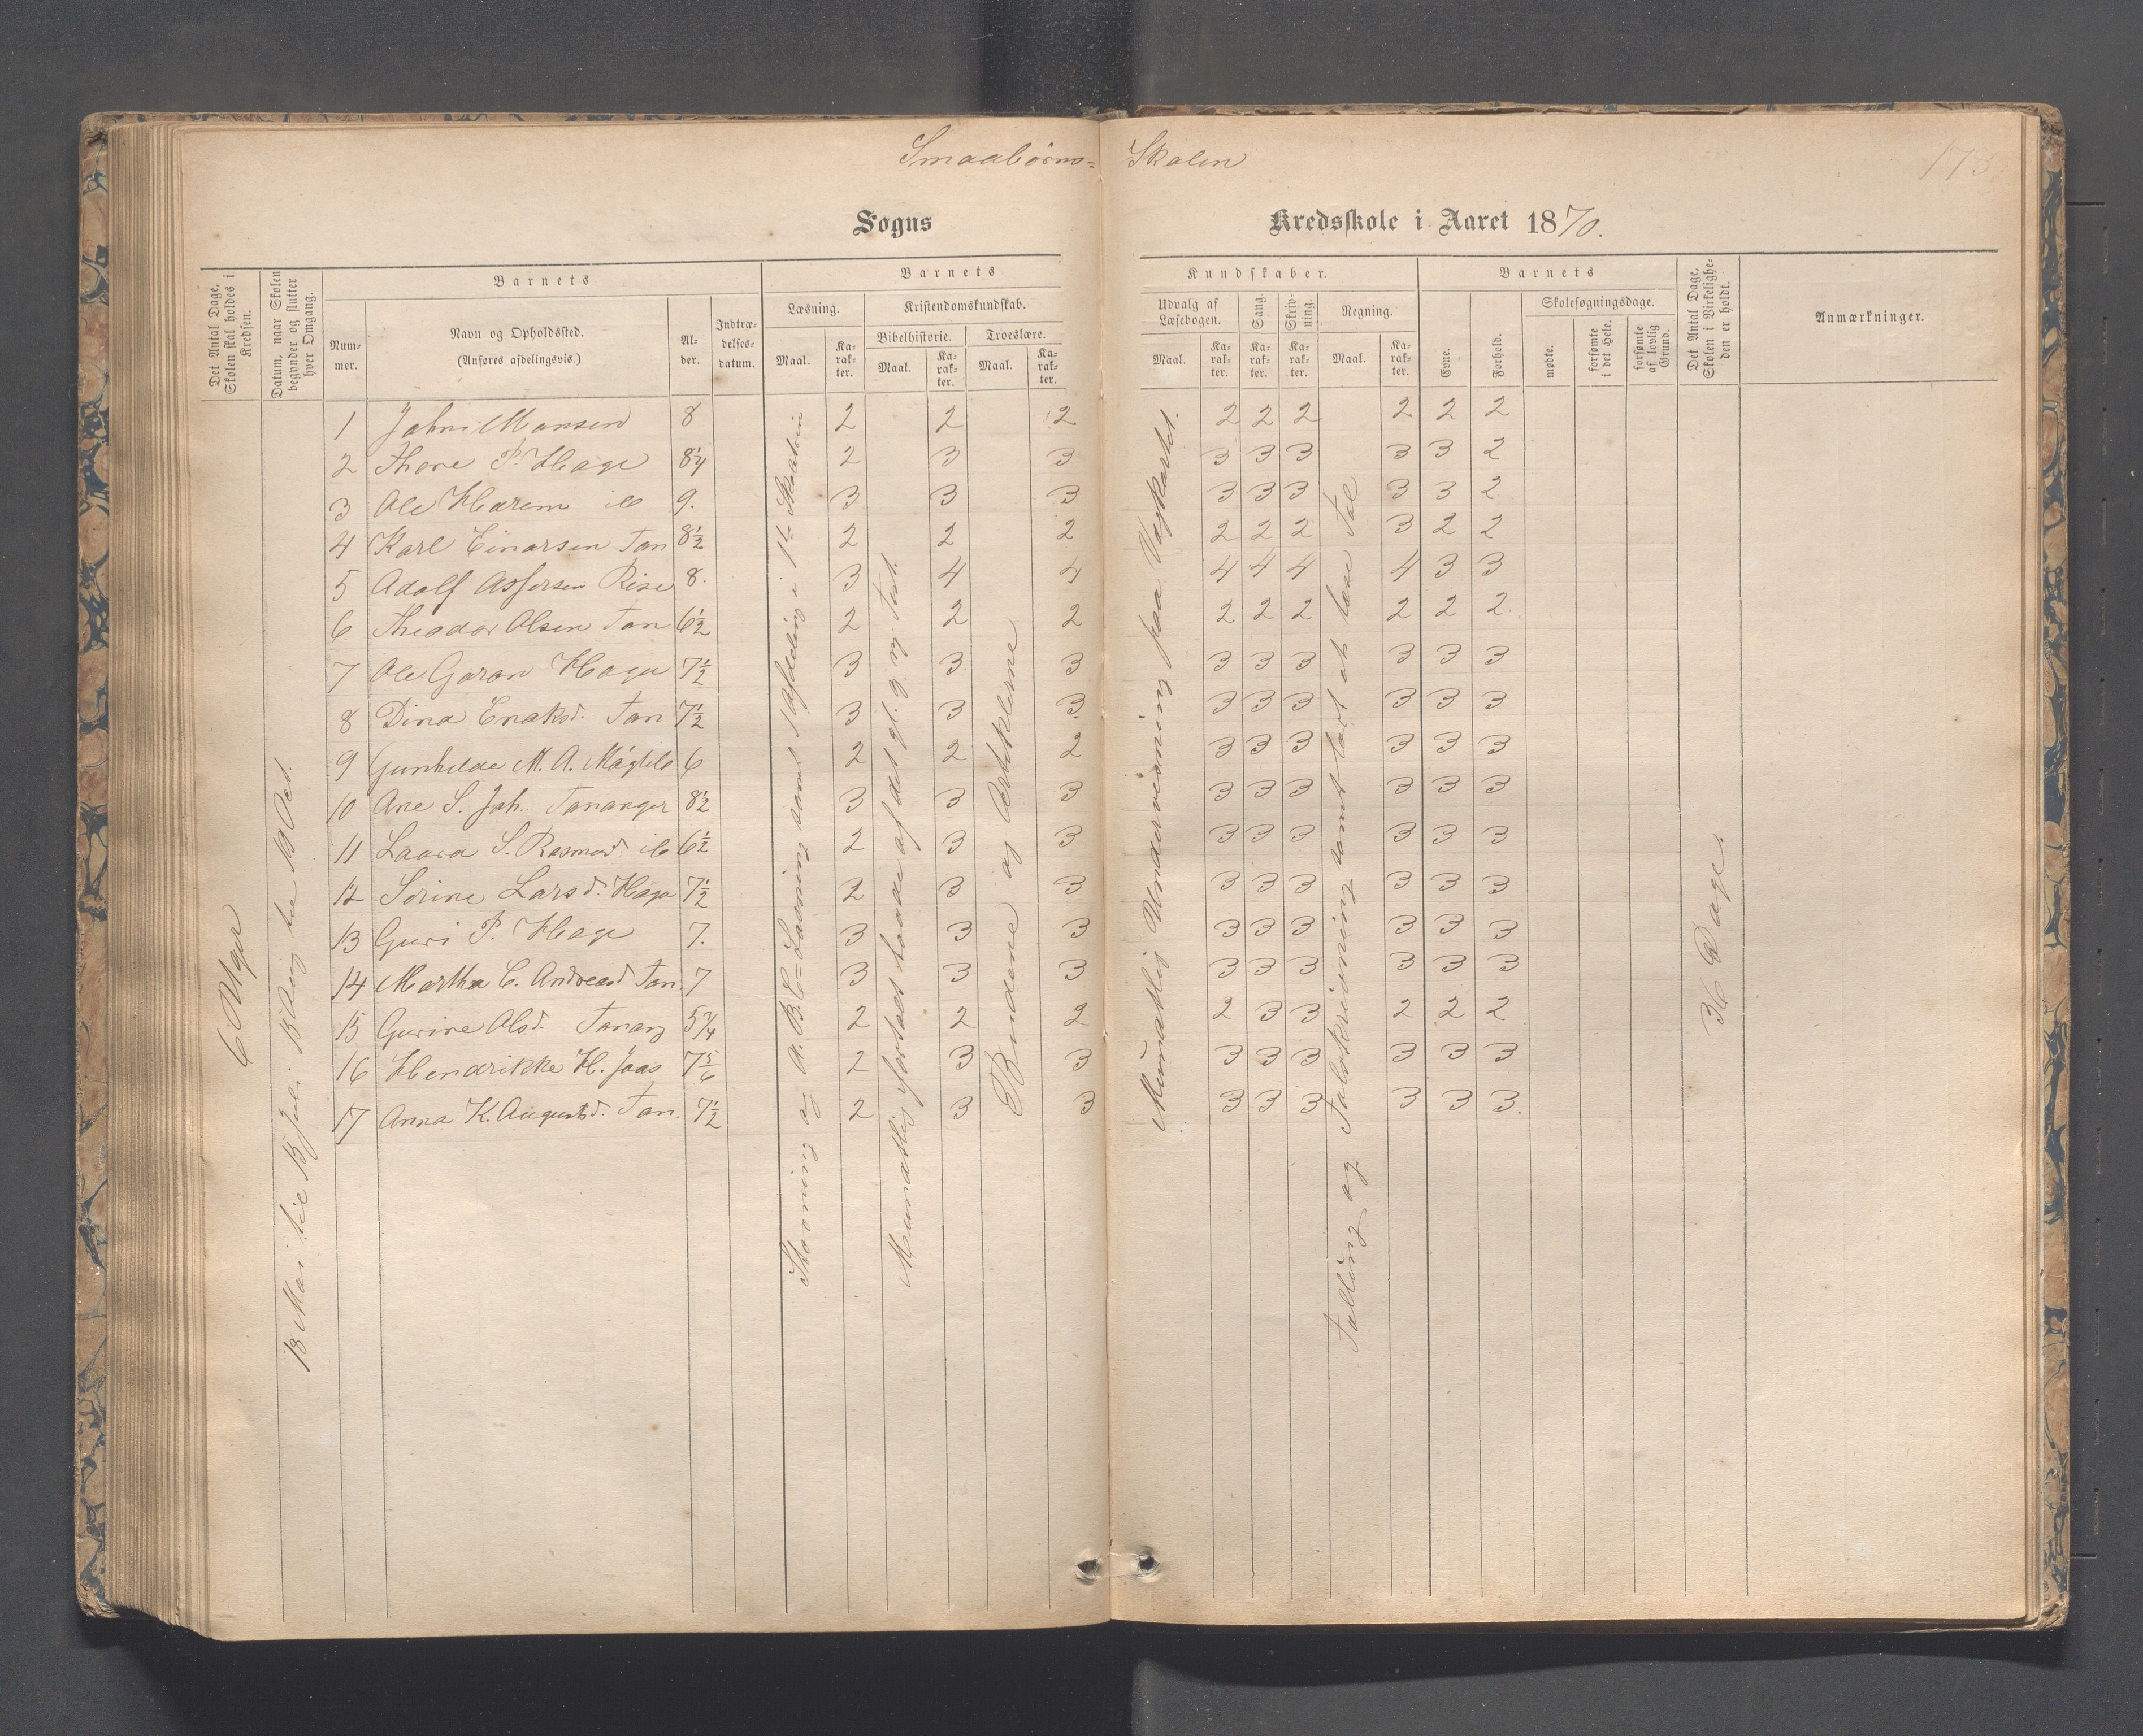 Smaabørns= Skolen
173.
Sogns Kredsskole i Aaret 1870.
Det Antal Dage, Skolen skal holdes i Kredsen.
Datum, naar Skolen begynder og slutter hver Omgang.
Barnets
Nummer.
Navn og Opholdssted.
(Anføres afdelingsvis.)
Alder.
Indtrædelsesdatum.
Barnets
Læsning.
Maal.
Karakter.
Kristendomskundskab.
Bibelhistorie.
Maal.
Karakter.
Troeslære.
Maal.
Karakter.
Kundskaber.
Udvalg af Læsebogen.
Maal.
Karakter.
Sang.
Karakter.
Skrivning.
Karakter.
Regning.
Maal.
Karakter.
Barnets
Evne.
Forhold.
Skolesøgningsdage.
mødte.
forsømte i det Hele.
forsømte af lovlig Grund.
Det Antal Dage, Skolen i Virkeligheden er holdt.
Anmærkninger.
6 Uger
18 Mai til 13 Juli. 13 Aug til 13 Oct.
Stavning og A.B.C=Læsning samt 1 Afdeling i 1te
Mundtlig fortalt baade af det gl. og ny Test.
Budene og Artiklerne
Mundtlig Underviisning paa
Tælling og Talskrivning samt lært at læse Tal
36 Dage.
1 John Monsen 8 2 2 2 2 2 2 2 2 2
2 Thore P. Hage 8¼ 2 3 3 3 3 3 3 3 2
3 Ole Harem ib 9. 3 3 3 3 3 3 3 3 2
4 Karl Einarsen Tan 8½ 2 2 2 2 2 2 3 2 2
5 Adolf Risa 8. 3 4 4 4 4 4 4 3 3
6 Theodor Olsen Tan 6½ 2 2 2 2 2 2 2 2 2.
7 Ole Haga 7½ 3 3 3 3 3 3 3 3 3
8 Dina Tan 7½ 3 3 3. 3 3 3 3 3 3
9 Gunhilde M. A. 6 2 2 2 3 3 3 3 3 3
10 Ane S. Joh. Tananger 8½ 3 3 3 3 3 3 3 3 3
11 Laura S. Rasmusd. ib 6½ 2 3 3 3 3 3 3 3 3
12 Serine Larsd. Haga 7½ 2 3 3 3 3 3 3 3 3
13 Guri P. Hage 7. 3 3 3 3 3 3 3 3 3
14 Martha C. Andreasd Tan. 7 3 3 3 3 3 3 3 3 3
15 Gurine Olsd. Tanang 5¾ 2 2 2 2 3 3 2 2 2
16 Hendrikke H. Jaas 7⅚ 2 3 3 3 3 3 3 3 3
17 Anna K. Augustsd. Tan. 7½ 2 3 3 3 3 3 3 3 3.